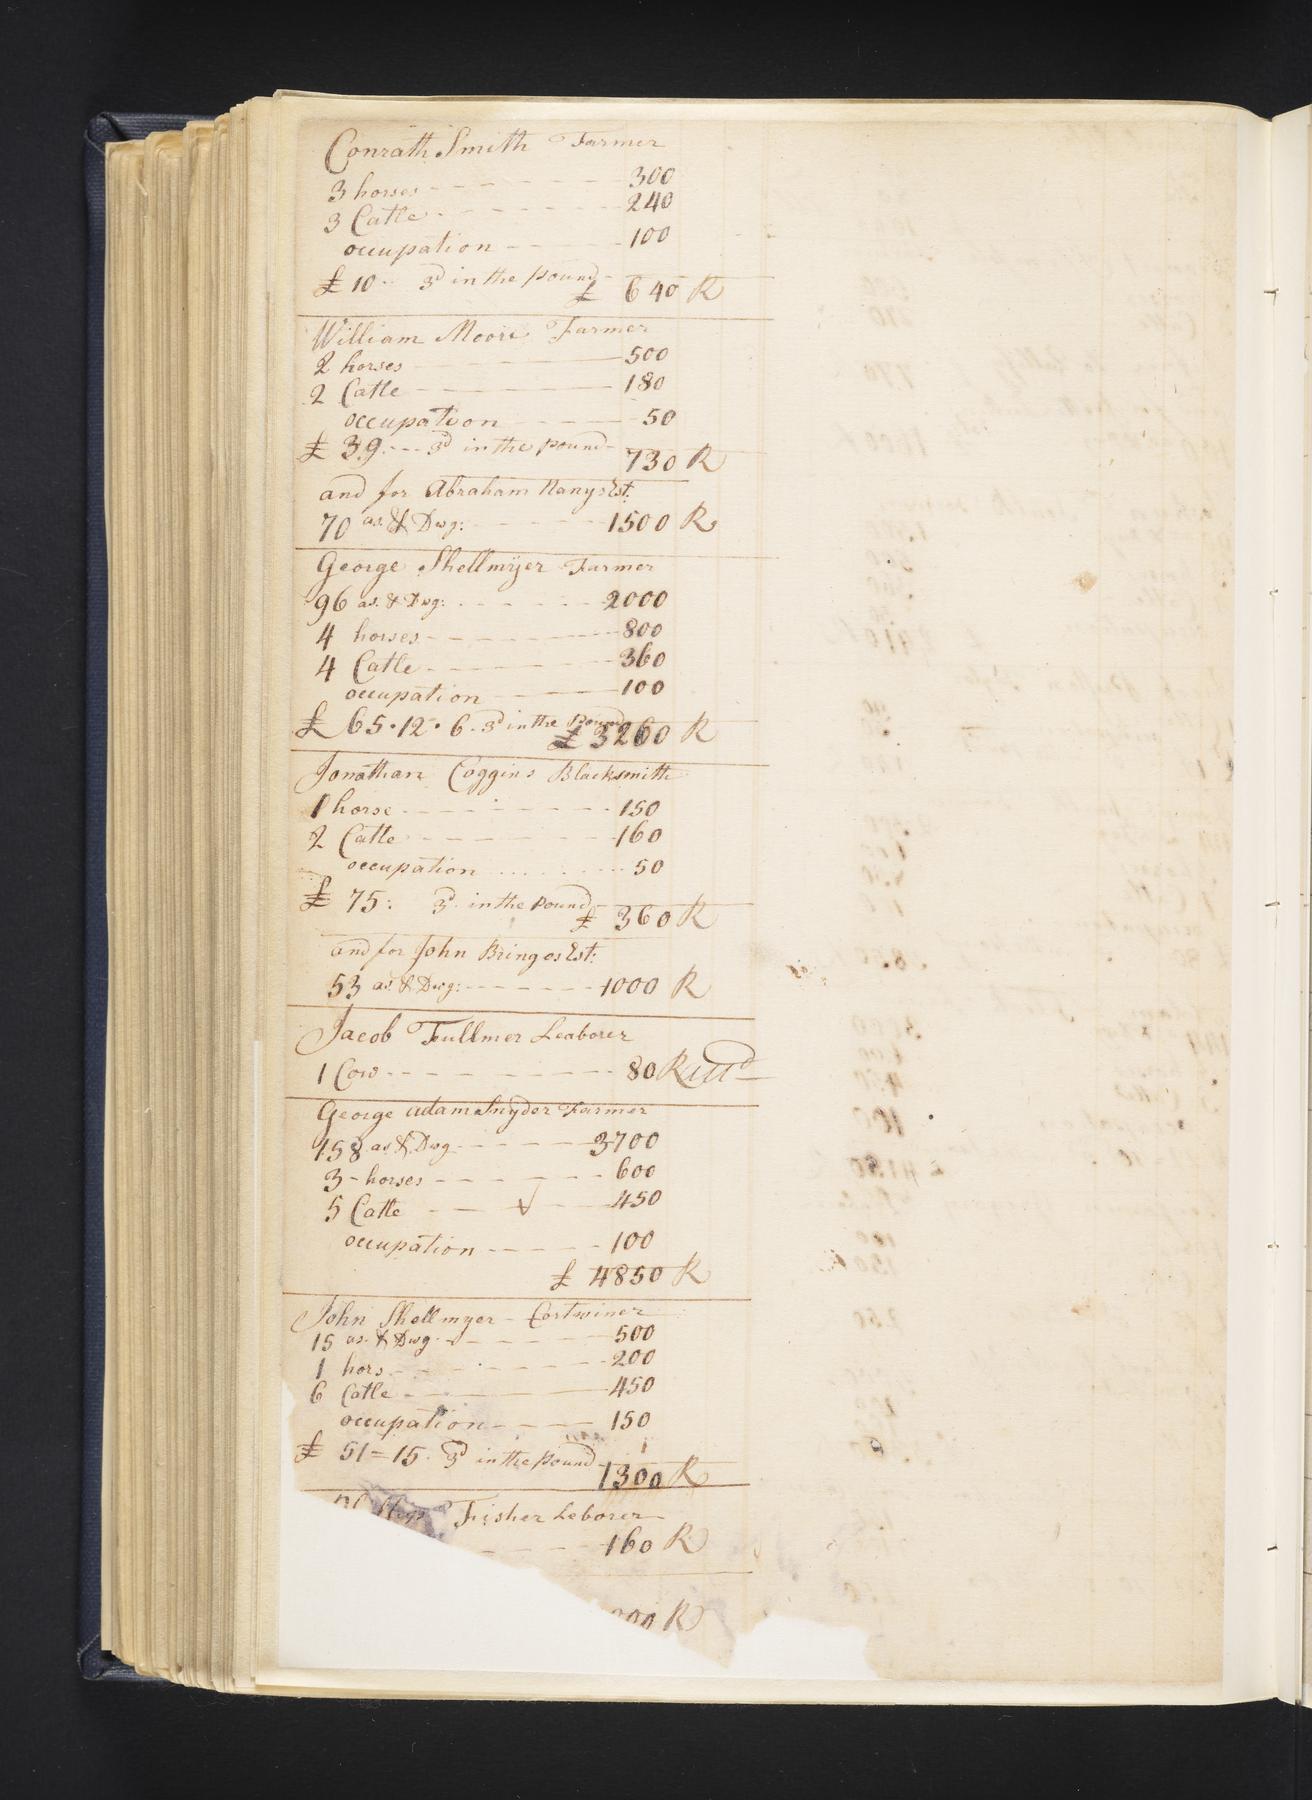 Conrath Smith Farmer
3 horses 300
3 Catle 240
occupation 100
£ 10 .. 3d in the pound
£ 640 R
William Moore Farmer
2 horses 500
2 Catle 180
occupation 50
£ 39 .. 3d in the pound
730 R
and for Abraham Nanys Est:
70 as. & Dwg: 1500 R
George Shellmyer Farmer
96 as. & Dwg: 2000
4 horses 800
4 Catle 360
occupation 100
£ 65 . 12 . 6 . 3d in the pound £ 3260 R
Jonathan Coggins Blacksmith
1 horse 150
2 Catle 160
occupation 50
£ 75 : 3d in the pound
£ 360 R
and for John Bringos Est:
53 as. & Dwg: 1000 R
Jacob Fullmer Leaborer
1 Cow 80 R
George adam Snyder Farmer
158 as. & Dwg 3700
3 - horses 600
5 Catle 450
occupation 100
£ 4850 R
John Shellmyer - Cortwiner
15 as. & Dwg 500
1 hors 200
6 Catle 450
occupation 150
£ 51 = 15 . 3d in the pound
1300 R
Fisher Leborer
160 R
R